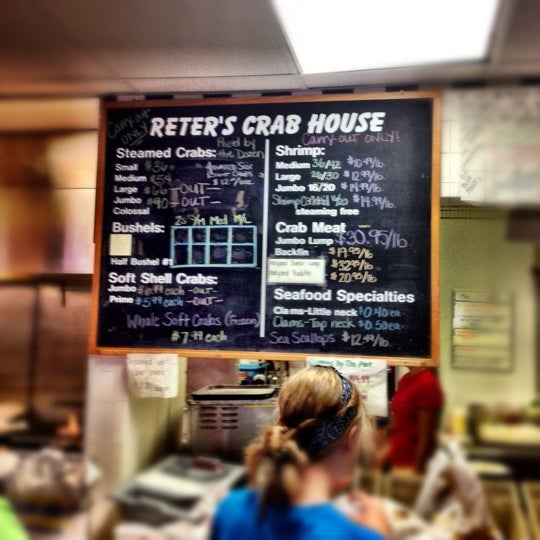 Carry-out ONLY
RETER'S CRAB HOUSE
Steamed Crabs: Priced by the Dozen
Small $36
Medium $54
Large $66 -OUT-
Jumbo $90 -OUT-
Colossal
Bushels: 2s S/m Med M/L
Half Bushel #1
Soft Shell Crabs:
Jumbo each -OUT-
Prime $5.99 each -OUT-
Whale Soft Crabs (Frozen)
$7.99 each
Carry-out ONLY!
Shrimp:
Medium 36/42 $10.99/lb
Large 26/30 $12.99/lb
Jumbo 16/20 $14.99/lb
Shrimp Cocktail $14.99/lb
steaming free
Crab Meat
Jumbo Lump $30.95/lb
Backfin $19.95/lb
$32.95/lb
$20.95/lb
Seafood Specialties
Clams-Little neck $0.40 ea
Clams-Top neck $0.50 ea
Sea Scallops $12.99/lb